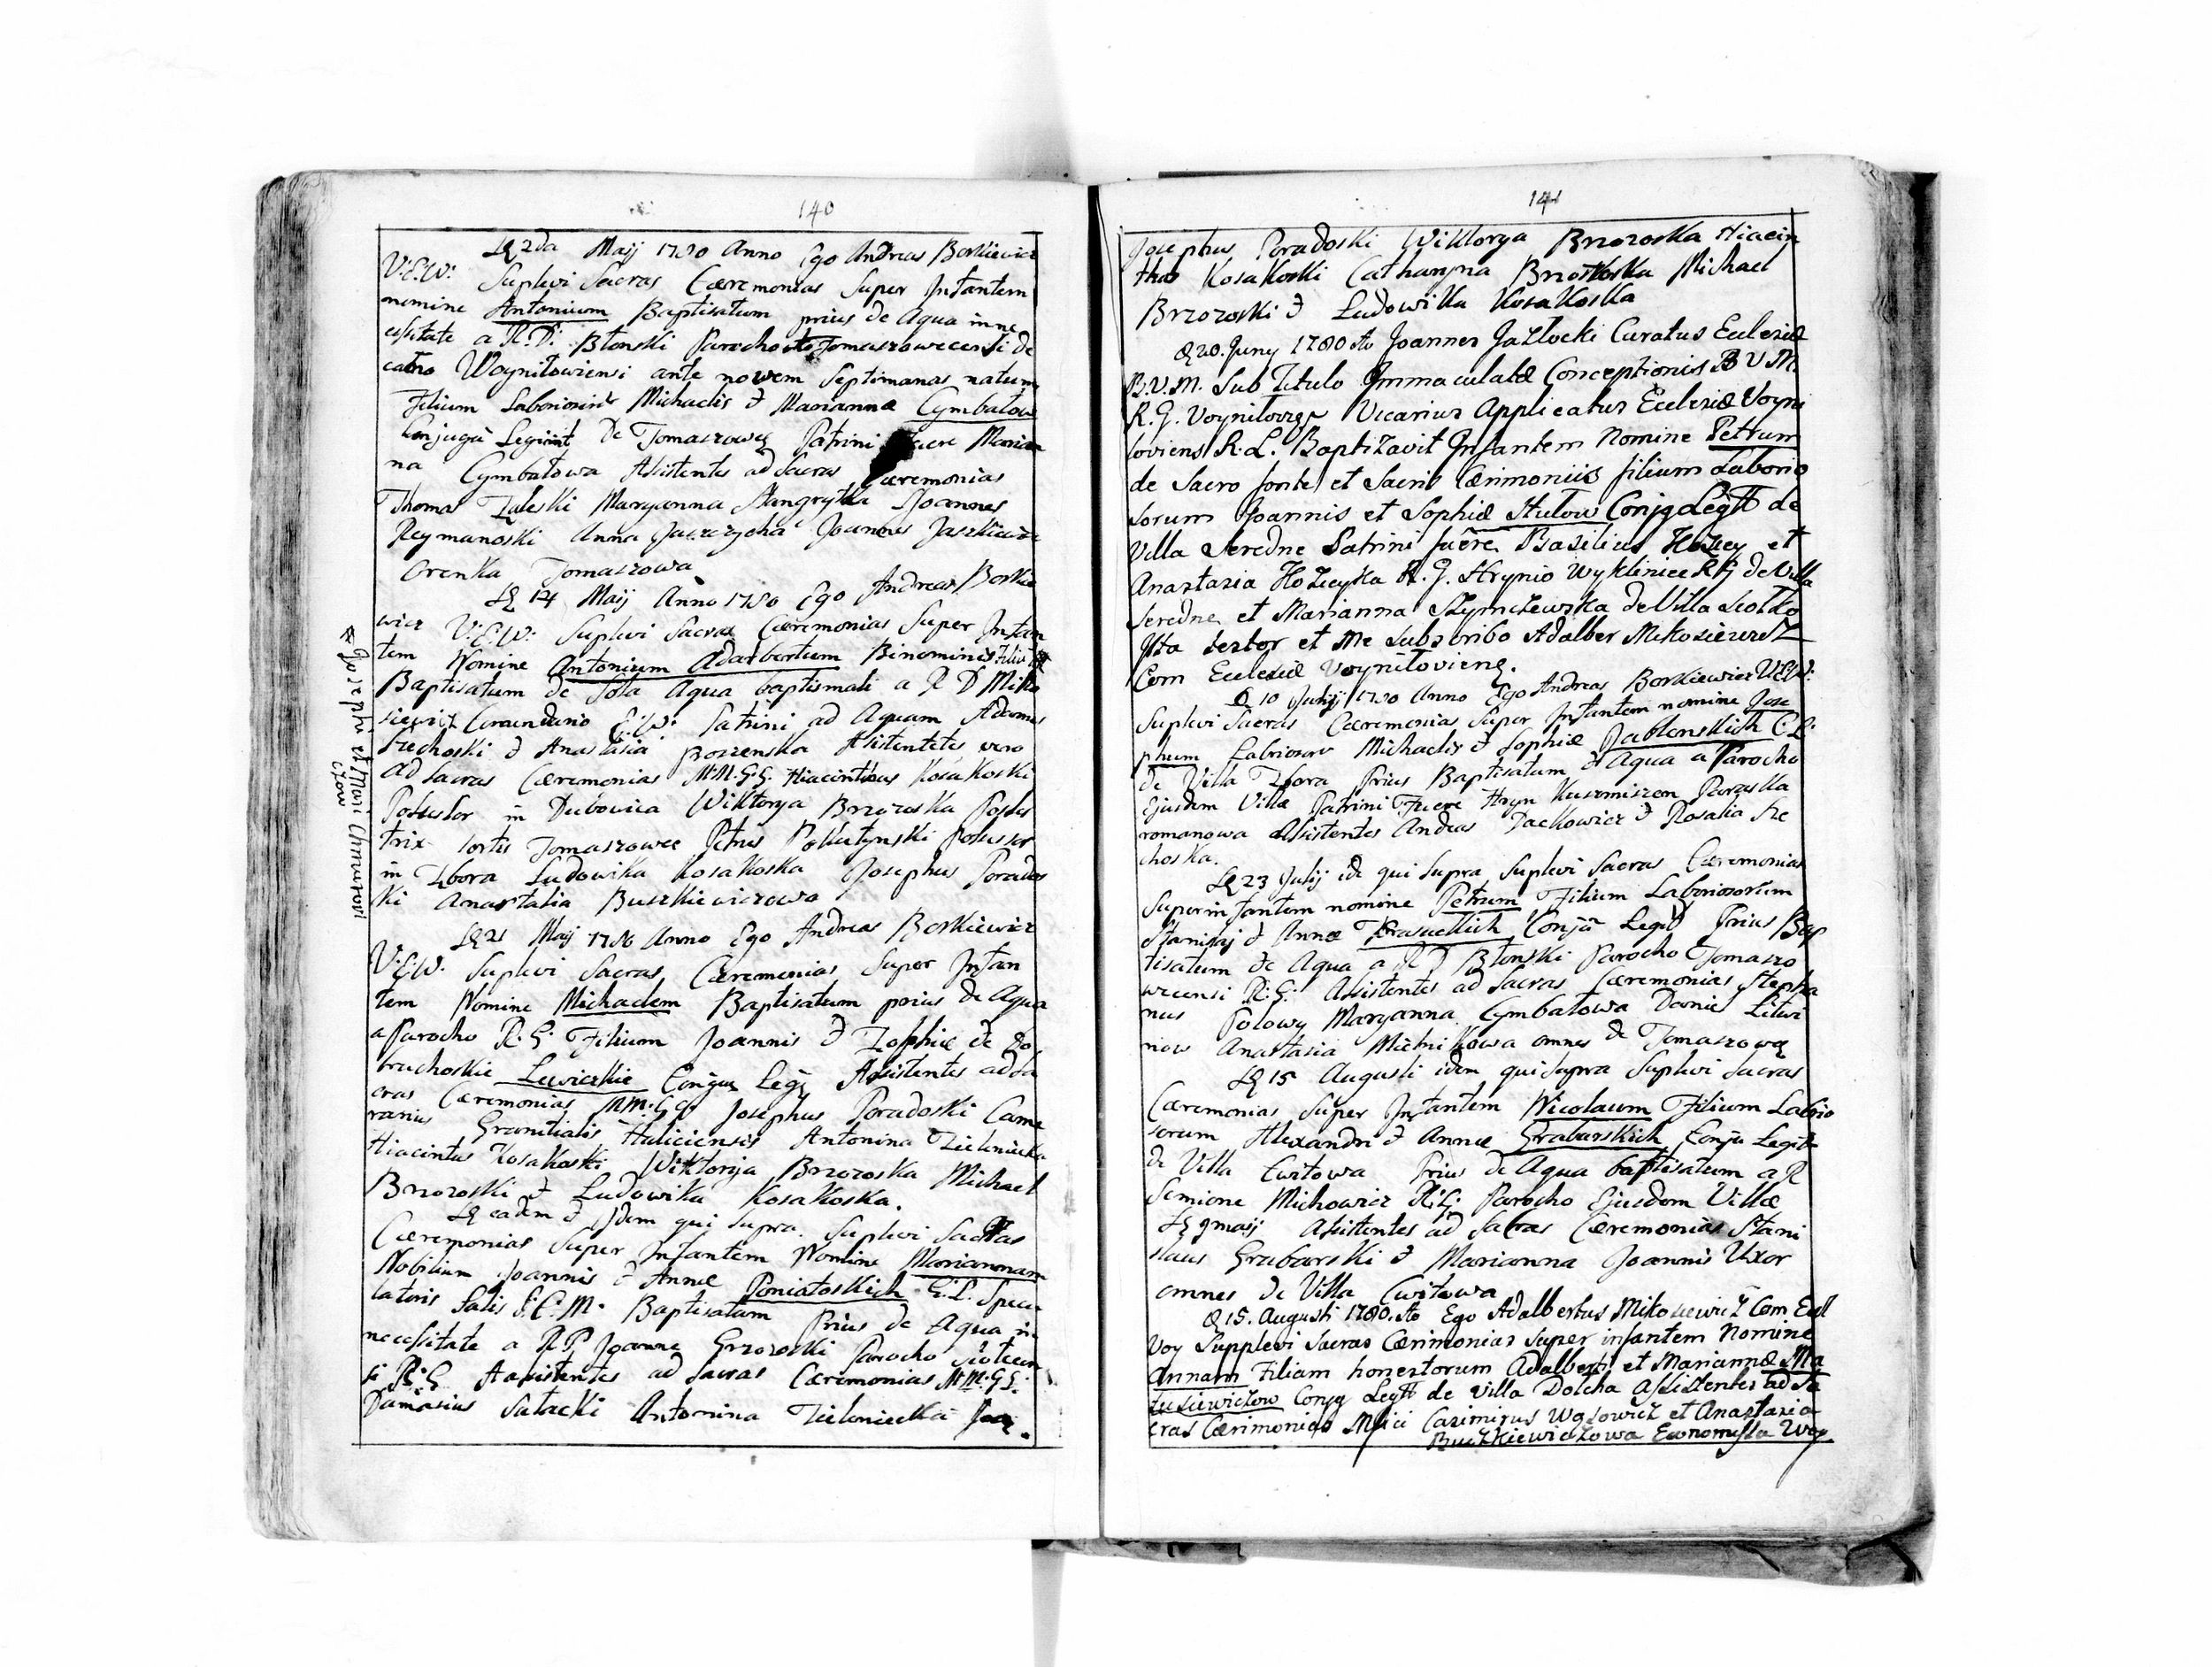 140
D 2da Maij 1780 Anno Ego Andreas Borkiewicz
V:E:W: Suplevi Sacras Cæremonias Super Infantem
nomine Antonium Baptisatum prius de Aqua in ne
cessitate a R.D: Błonski Parocho Tomaszowecensi de
catno Woyniłowiensi ante nowem Septimanas natum
Filium Laboriosor Michaelis & Marianna Cymbałow
Conjugū Legimt De Tomaszowq Patrini Fuere Marian
na Cymbałowa Asistentes ad Sacras Cæremonias
Thoma Zaleski Maryanna Joannes
Reymanoski Anna Joannes Jaszkiewicz
Orenka Tomaszowa
D 14 Maij Anno 1780 Ego Andreas Borkie
wicz V:E:W: Suplevi Sacras Cæremonias Super Infan
tem Nomine Antonium Adalbertum Binominis Filiū
Baptisatum de Sola Aqua baptismali a R D Miko
siewicz Comendario E:W: Patrini ad Aquam Adamus
Siechoski & Anastasia Asistentes vero
ad Sacras Cæremonias M.M.G.G. Hiacintus Kosakoski
Posesor in Dubowica Wiktorya Brzozoska Poses
trix sortis Tomaszowce Petrus Pokutynski Posessor
in Zbora Ludowika Kosakoska Josephus Porados
ki Anastasia Buszkiewiczowa
Josephi et Mari Chmurovi
czow
D 21 Maij 1780 Anno Ego Andreas Borkiewicz
V:E:W: Suplevi Sacras Cæremonias Super Infan
tem Nomine Michaelem Baptisatum prius de Aqua
a Parocho R.G. Filium Joannis & Zophiæ de Do
bruchoskie Lewickie Conjug Legi Asistentes ad Sa
cras Cæremonias M.M.G.G. Josephus Poradoski Came
rarius Granitialis Haliciensis Antonina Zieleniecka
Hiacintus Kosakoski Wiktorya Brzozoska Michael
Brzozoski & Ludowika Kosakoska.
D eadem & Idem qui supra Suplevi Sacras
Cæremonias Super Infantem Nomine Mariannam
Nobilium Joannis & Annæ Poniatoskich C:L: Specu
latoris Salis S.C.M. Baptisatam Prius de Aqua in
necessitate a R P Joanne Grzozoski Parocho
si R:G Asistentes ad Sacras Cæremonias M:M:G:G:
Damasius Satacki Antonina Zieleniecka

141
Josephus Poradoski Wiktorya Brzozoska Hiacin
thus Kosakoski Catharyna Michael
Brzozoski & Ludowika Kosakoska
D 20. Juny 1780 Ao Joannes Jazłocki Curatus Ecclesiæ
B.V.M. Sub Titulo Immaculatæ Conceptionis B V M.
R.G. Voyniloveg Vicarius Applicatus Ecclesiæ Voyni
loviens R.L. Baptizavit Infantem Nomine Petrum
de Sacro fonte et Sacris Cærimoniis filium Laborio
sorum Joannis et Sophiæ Hulow Conjg Legtt de
Villa Seredne Patrini fuêre Basilius Hozey et
Anastasia Hozeyka R.G. Hrynio Wyklinice RG de Villa
Seredne et Marianna Szymczewska de Villa
Ista testor et me Subscribo Adalber Mikosiewicz
Com Ecclesiæ Voyniloviens.
D 10 Julij 1780 Anno Ego Andreas Borkiewicz V:E:W:
Suplevi Sacras Cæremonias Super Infantem nomine Jose
phum Laboriosor Michaelis & Sophiæ Jablonskich C:L:
de Villa Zbora Prius Baptisatum de Aqua a Parocho
Ejusdem Villæ Patrini Fuere Hryn
romanowa Asistentes Andreas Dackowicz & Rosalia Sie
choska.
D 23 Julij id qui supra Suplevi Sacras Cæremonias
Super infantem nomine Petrum Filium Laboriosorum
Stanisłaj & Annæ Conjū Legit Prius Bap
tisatum de Aqua a R D Błonski Parocho Tomaszo
wecensi R:G: Asistentes ad Sacras Cæremonias Stepha
nus Polowy Maryanna Cymbałowa Daniel Litwi
now Anastasia Mielnikowa omnes de Tomaszowq
D 15 Augusti idem qui supra Suplevi Sacras
Cæremonias Super Infantem Nicolaum Filium Labrio
sorum Alexandri & Annæ Grabarskich Conju Legit
de Villa Cwitowa Prius de Aqua baptisatum a R
Semione Michowicz R:G: Parocho Ejusdem Villæ
D 9 maij Asistentes ad Sacras Cæremonias Stani
slaus Grabarski & Marianna Joannis Uxor
omnes de Villa Cwitowa
D 15. Augusti 1780. Ao Ego Adalbertus Mikosiewicz Com Eccl
Voy Supplevi Sacras Cærimonias super infantem Nomine
Annam Filiam honestorum Adalberti et Mariannæ Ma
tusiewiczow Conjg Legtt de Villa Dolcha Assistentes ad Sa
cras Cærimonias Mfici Casimirus Wąsowicz et Anastasia
Buszkiewiczowa Economissa Voy